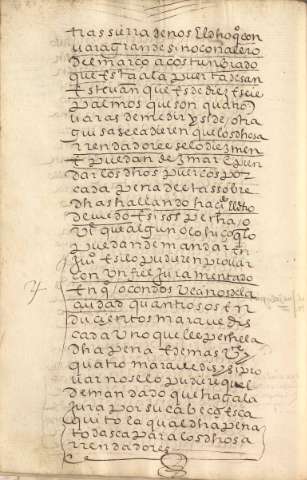 tras sierra de nos El dho q̃ con
vara grande sino con el ero
del marco acostunbrado
que esta a la puerta de san
esteuan que es de diez e seis
palmos que son quatro
varas de medir y si de otra
guisa se cadieren que los dhos a
rrendadores se lo diezmen
e puedan dezmar e pren
dar los dhos puercos por
cada pena destas sobre
dhas hallando hazi el dho
deuedo e si sospecha o
que alguno lo hico lo
puedan demandar en
juiº e si lo pudieren prouar
con un fiel juramentado
en q / o con dos Vecinos de la
ciudad quantiosos en
ducientos maravedis
cada uno que lle peche la
dha pena e demas
quatro maravedis y si pro
uar no se lo pudiere que el
demandado que haga la
jura por su cabeça e sea
quito la qual dha pena
toda sea para los dhos a
rrendadores